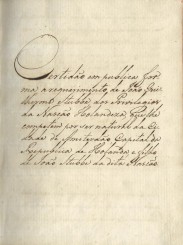 Certidão em publica for
ma, a requerimento de João Gui
lherme Stubbe dos Privilegios
da Nasção Holandeza, que lhe
competem por ser natural da Ci
dade de Amsterdão Capital da
Republica de Holanda e filho
de João Stubbe da dita Nasção